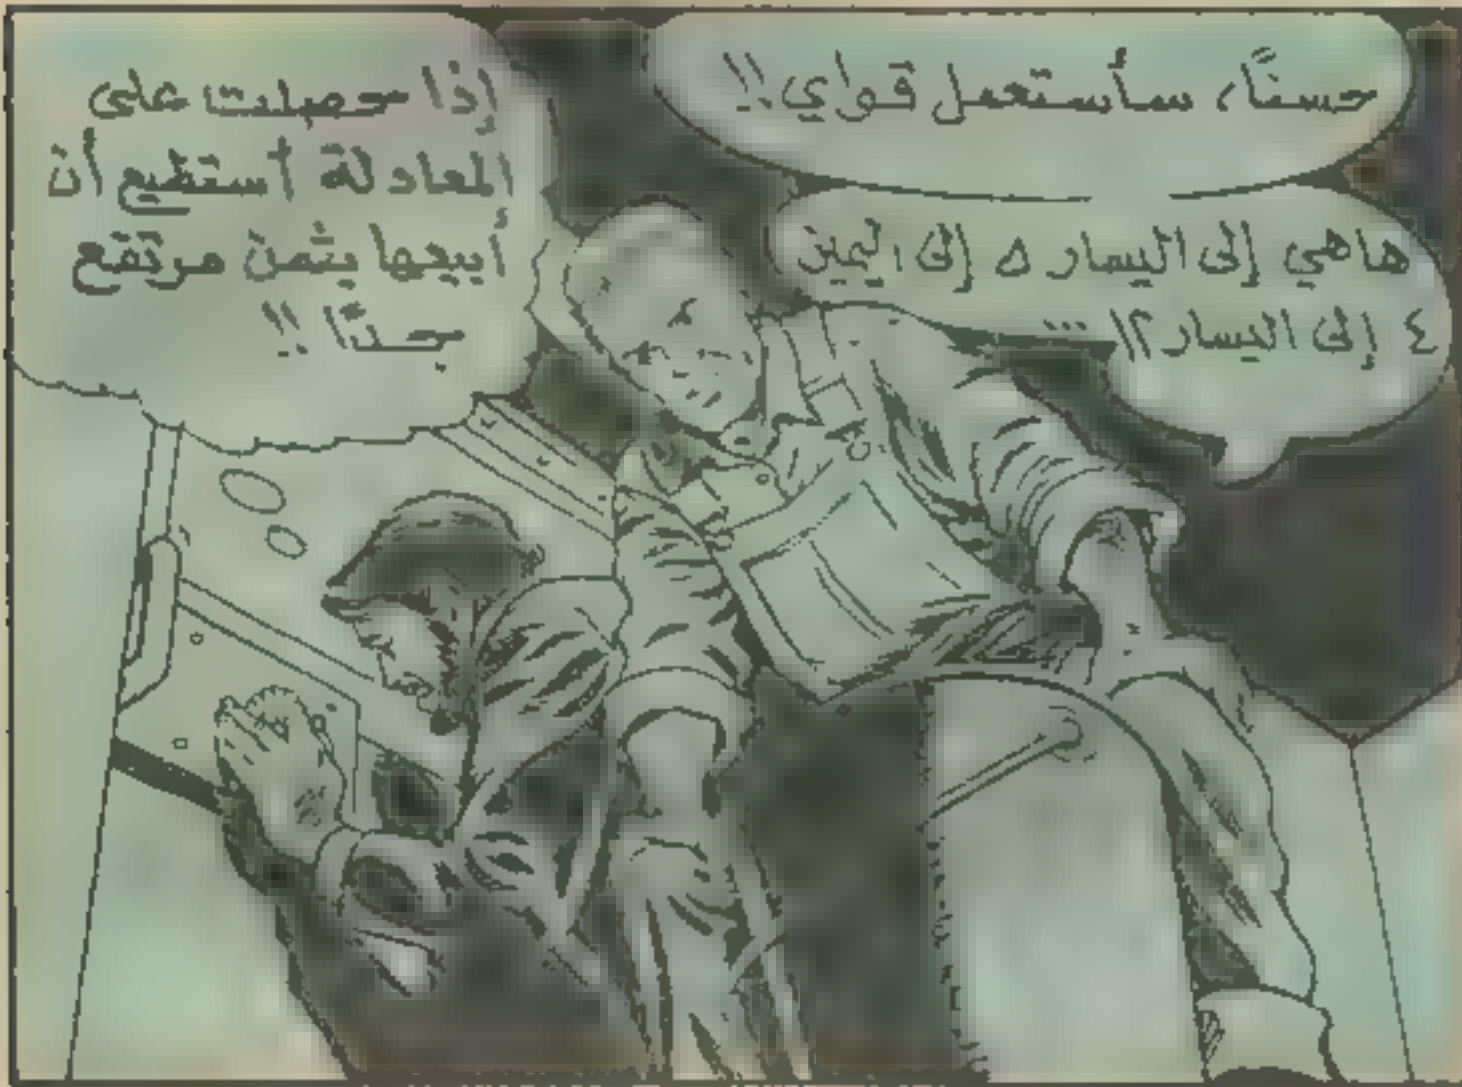 حسنًا، سأستعمل قواي!!
هاهي إلى اليسار ٥ إلى اليمين
٤ إلى اليسار؟! ...
إذا حصلت على
المعادلة أستطيع أن
أبيعها بثمن مرتفع
جدًّا !!